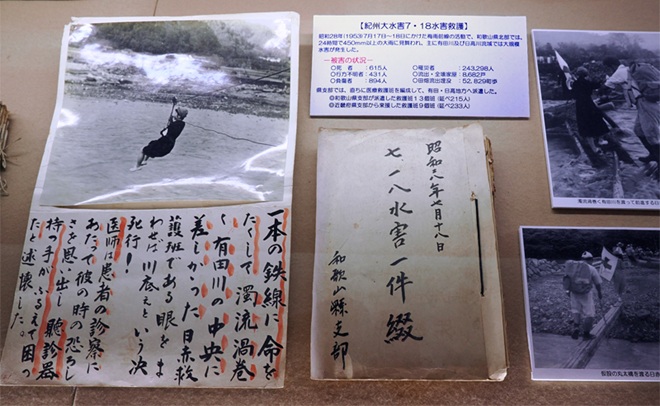 【紀州大水害7・18水害救護】
昭和28年(1953)7月17日〜18日にかけた梅雨前線の活動で、和歌山県北部では、
24時間で450mm以上の大雨に見舞われ、主に有田川及び日高川流域では大規模
水害が発生した。
―被害の状況―
○死 者 : 615人
○行方不明者 : 431人
○負傷者 : 894人
○罹災者 : 243,298人
○流出・全壊家屋 : 8,682戸
○田畑流出埋没 : 52,829町歩
県支部では、直ちに医療救護班を編成して、有田・日高地方へ派遣した。
◎和歌山県支部が派遣した救護班13個班(延べ215人)
◎近畿府県支部から来援した救護班9個班(延べ233人)
一本の鉄線に命を
たくして濁流渦巻
く有田川の中央に
差しかった日赤救
護班である眼をま
わせば川底えという決
死行!
医師は患者の診察に
あたって彼の時の恐ろし
さを思い出し聽診器
持つ手がふるえて困っ
たと述懐した。
昭和二八年七月十八日
七、一八水害一件綴
和歌山縣支部
仮設の丸太橋を渡る日赤